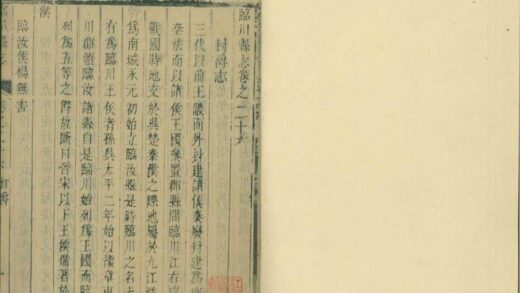 臨川縣志卷之二十六
封爵志
三代以前王畿而外封建諸侯秦廢封建爲
秦法而以諸侯王國參置郡縣間臨川江右
戰國時地交於吳楚秦漢之際地屬於九江
爲南城永元初始立臨汝縣是時臨川之名
有爲臨川王侯者孫吳太平二年始以豫章東
川郡領臨汝諸縣自是臨川始列爲王國而臨
列爲五等之 故斷自晉宋以下王侯備著於
漢
臨汝侯楊無害